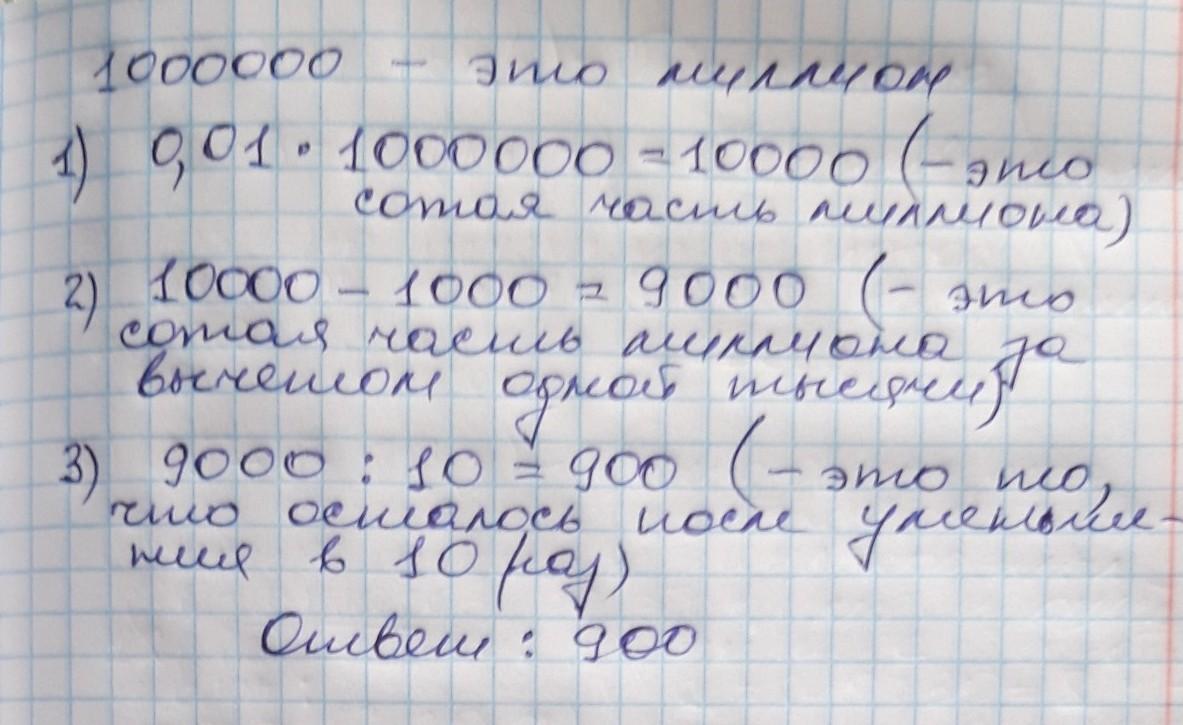 1000000 - это миллион
1) 0,01 · 1000000 = 10000 (- это
сотая часть миллиона)
2) 10000 - 1000 = 9000 (- это
сотая часть миллиона за
вычетом одной тысячи)
3) 9000 : 10 = 900 (- это то,
что осталось после уменьше-
ния в 10 раз)
Ответ : 900